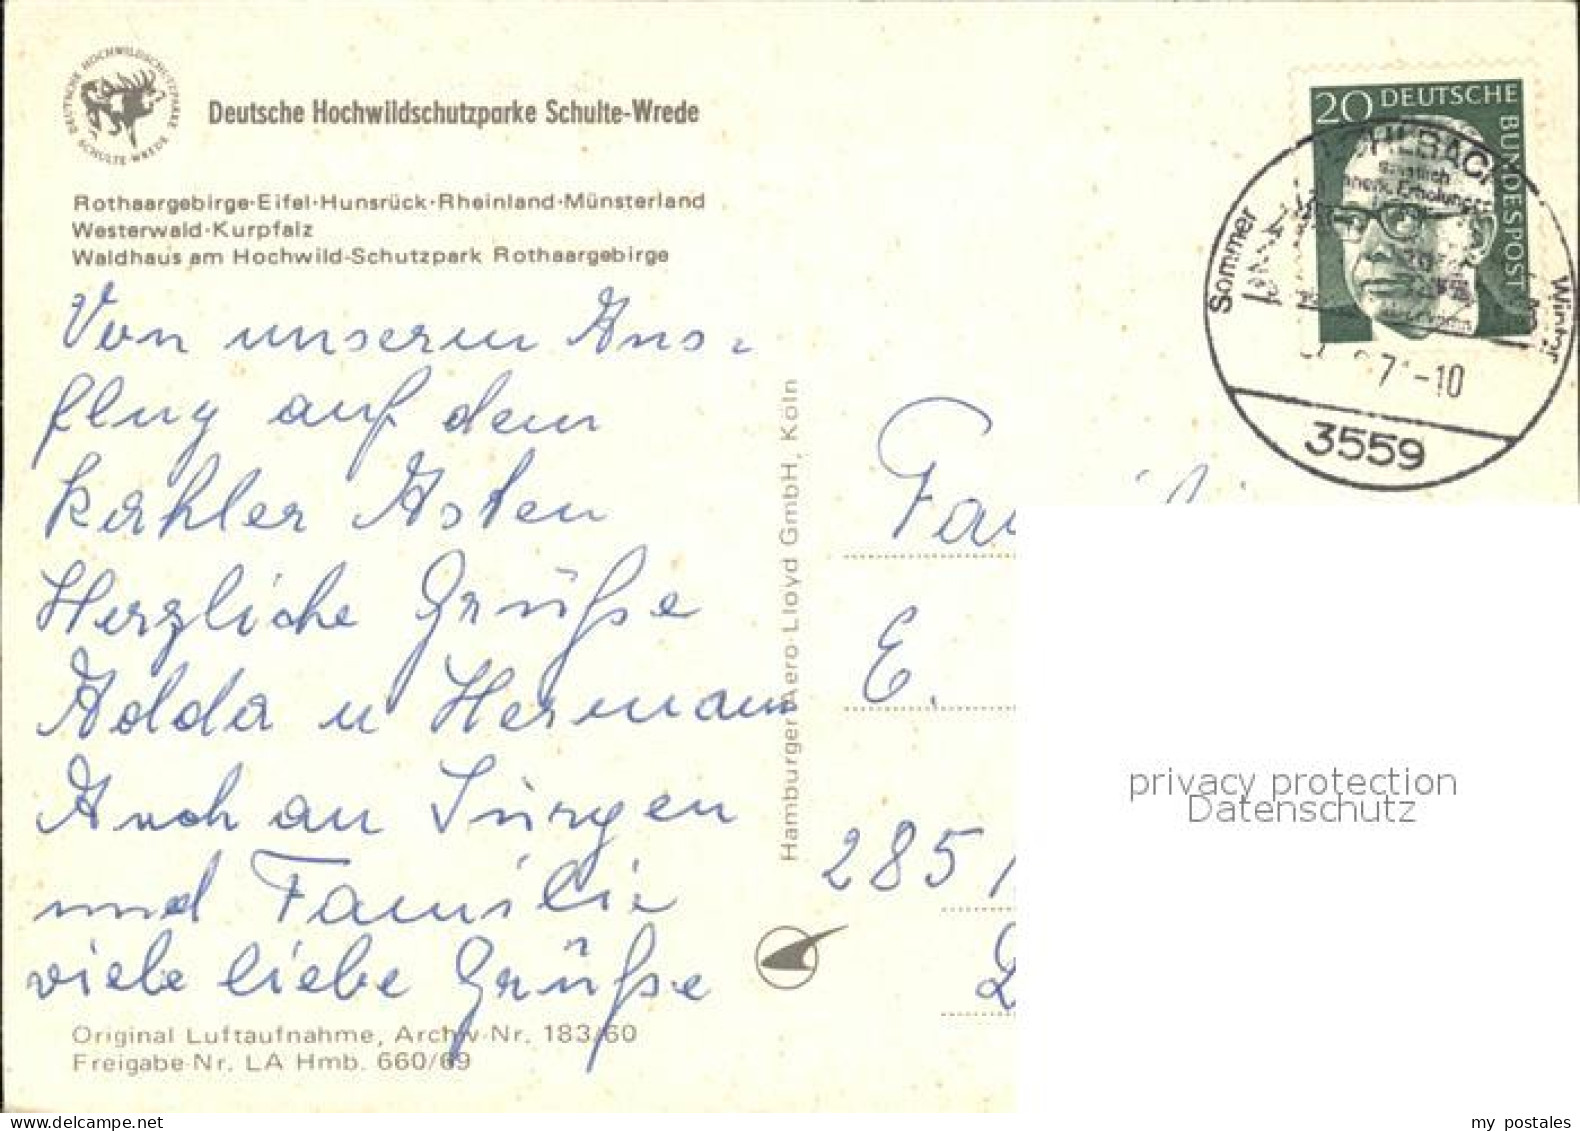 DEUTSCHE HOCHWILDSCHUTZPARKE SCHULTE-WREDE
Deutsche Hochwildschutzparke Schulte-Wrede
Rothaargebirge·Eifel·Hunsrück·Rheinland·Münsterland
Westerwald·Kurpfalz
Waldhaus am Hochwild-Schutzpark Rothaargebirge
Von unserm Aus-
flug auf dem
kahler Asten
Herzliche Grüße
Adda u Hermann
Auch an Jürgen
und Familie
viele liebe Grüße
Original Luftaufnahme, Archiv-Nr. 183/60
Freigabe-Nr. LA Hmb. 660/69
Hamburger Aero-Lloyd GmbH, Köln
20 DEUTSCHE
BUNDESPOST
Sommer
Winter
-10
3559
E.
285
privacy protection
Datenschutz
my postales
www.delcampe.net